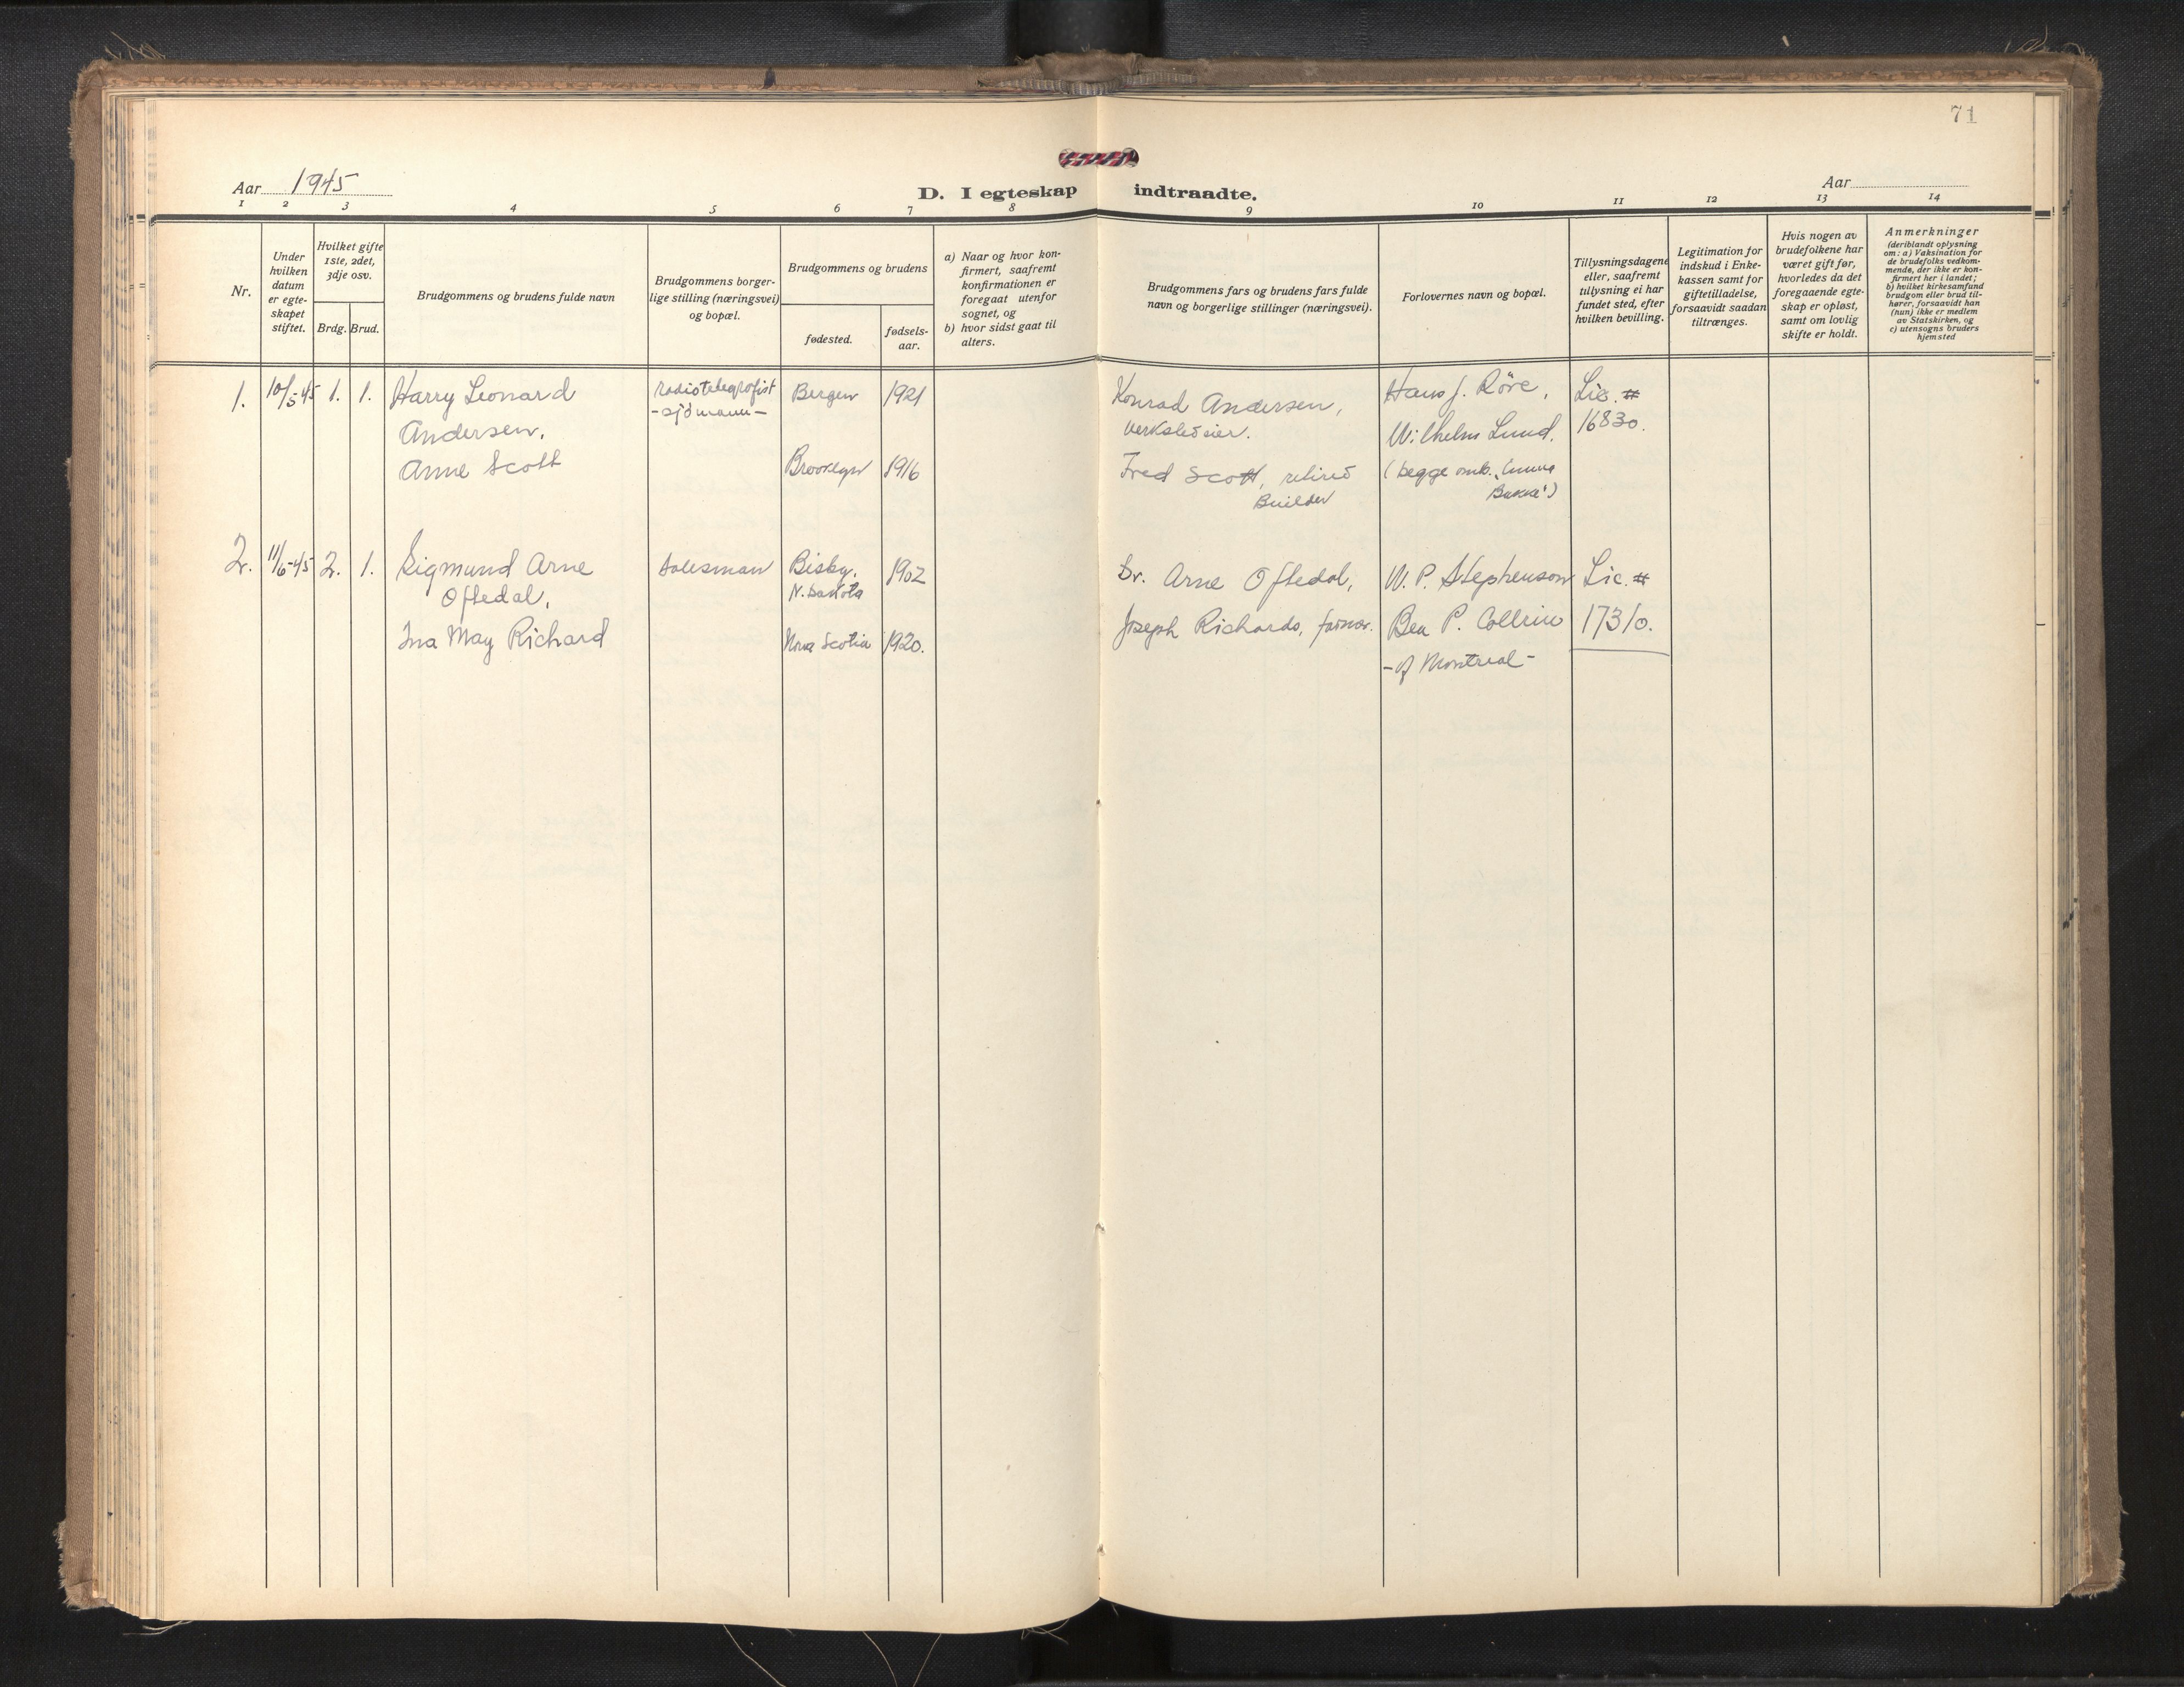 71
Aar 1945
D. I egteskap indtraadte.
Aar
1 2 3 4 5 6 7 8 9 10 11 12 13 14
Nr.
Under
hvilken
datum
er egte-
skapet
stiftet.
Hvilket gifte
1ste, 2det,
3dje osv.
Brdg. Brud.
Brudgommens og brudens fulde navn
Brudgommens borger-
lige stilling (næringsvei)
og bopæl.
Brudgommens og brudens
fødested.
fødsels-
aar.
a) Naar og hvor kon-
firmert, saafremt
konfirmationen er
foregaat utenfor
sognet, og
b) hvor sidst gaat til
alters.
Brudgommens fars og brudens fars fulde
navn og borgerlige stillinger (næringsvei).
Forlovernes navn og bopæl.
Tillysningsdagene
eller, saafremt
tillysning ei har
fundet sted, efter
hvilken bevilling.
Legitimation for
indskud i Enke-
kassen samt for
giftetilladelse,
forsaavidt saadan
tiltrænges.
Hvis nogen av
brudefolkene har
været gift før,
hvorledes da det
foregaaende egte-
skap er opløst,
samt om lovlig
skifte er holdt.
Anmerkninger
(deriblandt oplysning
om: a) Vaksination for
de brudefolks vedkom-
mende, der ikke er kon-
firmert her i landet;
b) hvilket kirkesamfund
brudgom eller brud til-
hører, forsaavidt han
(hun) ikke er medlem
av Statskirken, og
c) utensogns bruders
hjemsted
1. 10/5-45 1. 1.
Harry Leonard
Andersen.
Anne Scott
radiotelegrafist
- sjömann -
Bergen 1921
Brooklyn 1916
Konrad Andersen,
verkstedeier.
Fred Scott, retired
Builder
Hans J. Röre,
Wilhelm Lund.
(begge omb.
Lic. #
16830.
2. 11/6-45 2. 1.
Sigmund Arne
Oftedal,
Ina May Richard
Salesman
Bisby,
N. Dakota
1902
Nova Scotia 1920.
Dr. Arne Oftedal,
Joseph Richards, farmer.
W. P. Stephenson
Ben P.
- of Montreal -
Lic. #
17310.